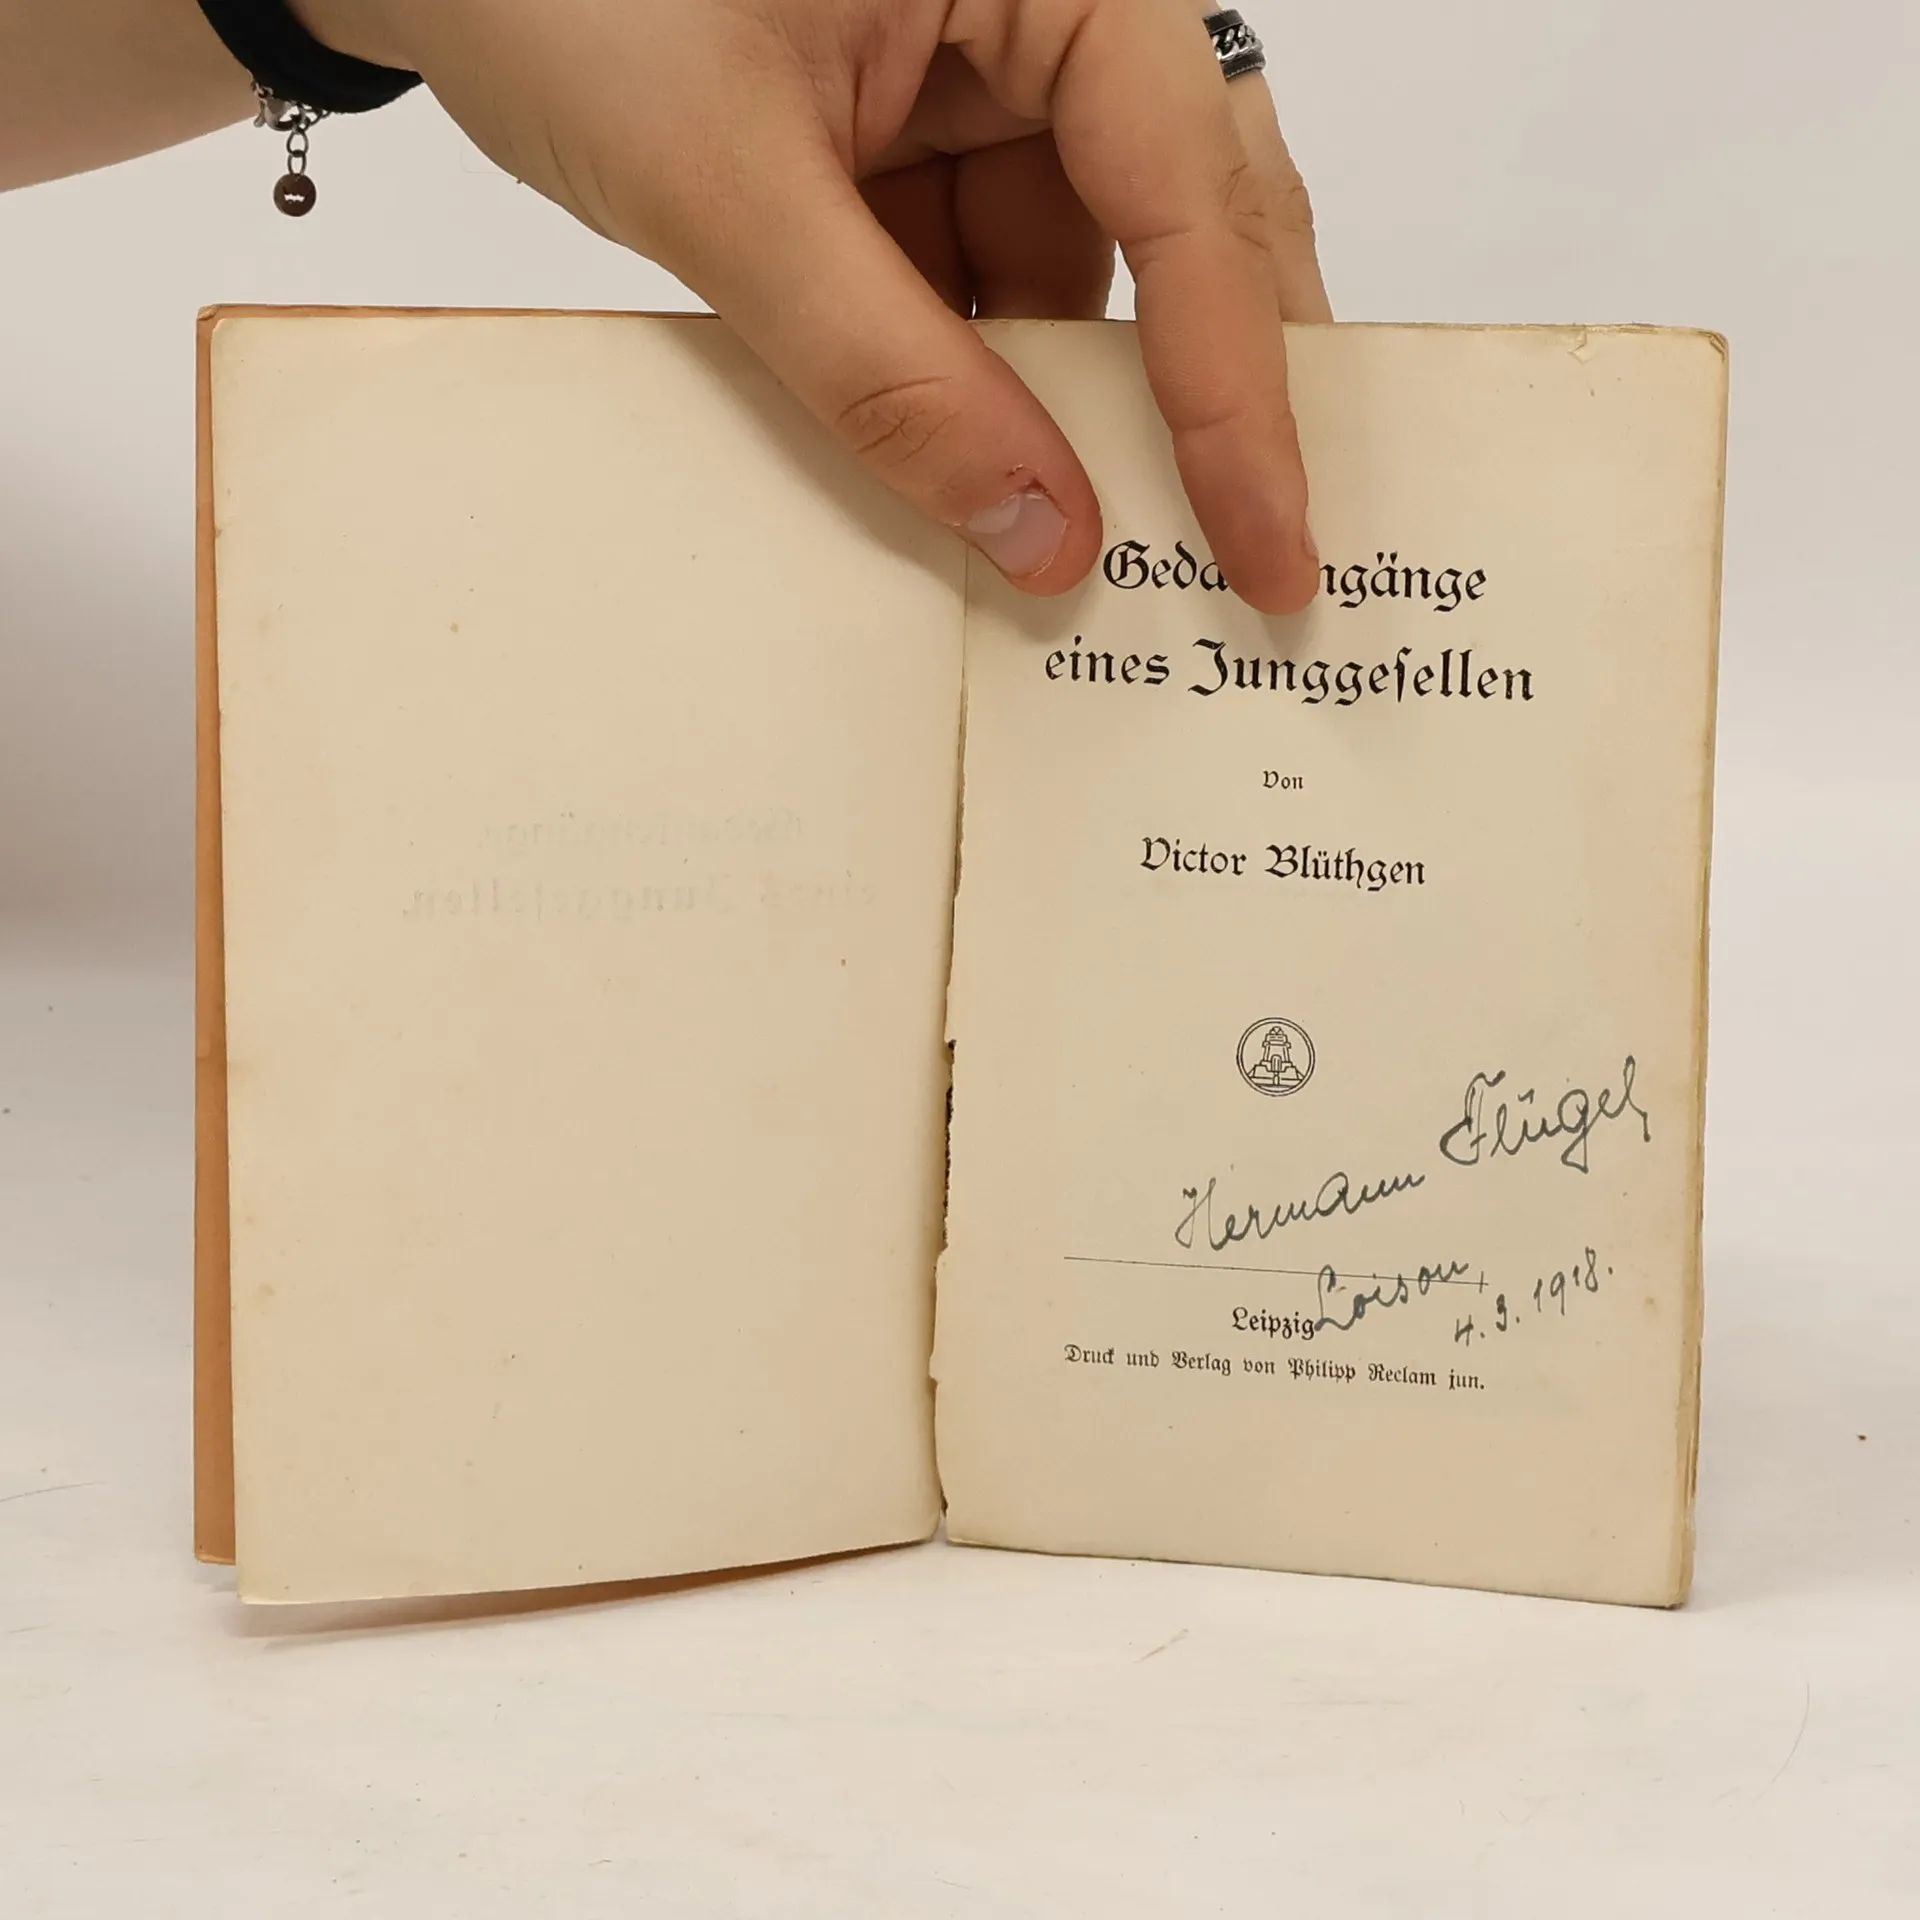 Gedankengänge
eines Junggeſellen
Von
Victor Blüthgen
Hermann Flügel,
Loison,
4. 3. 1918.
Leipzig
Druck und Verlag von Philipp Reclam jun.